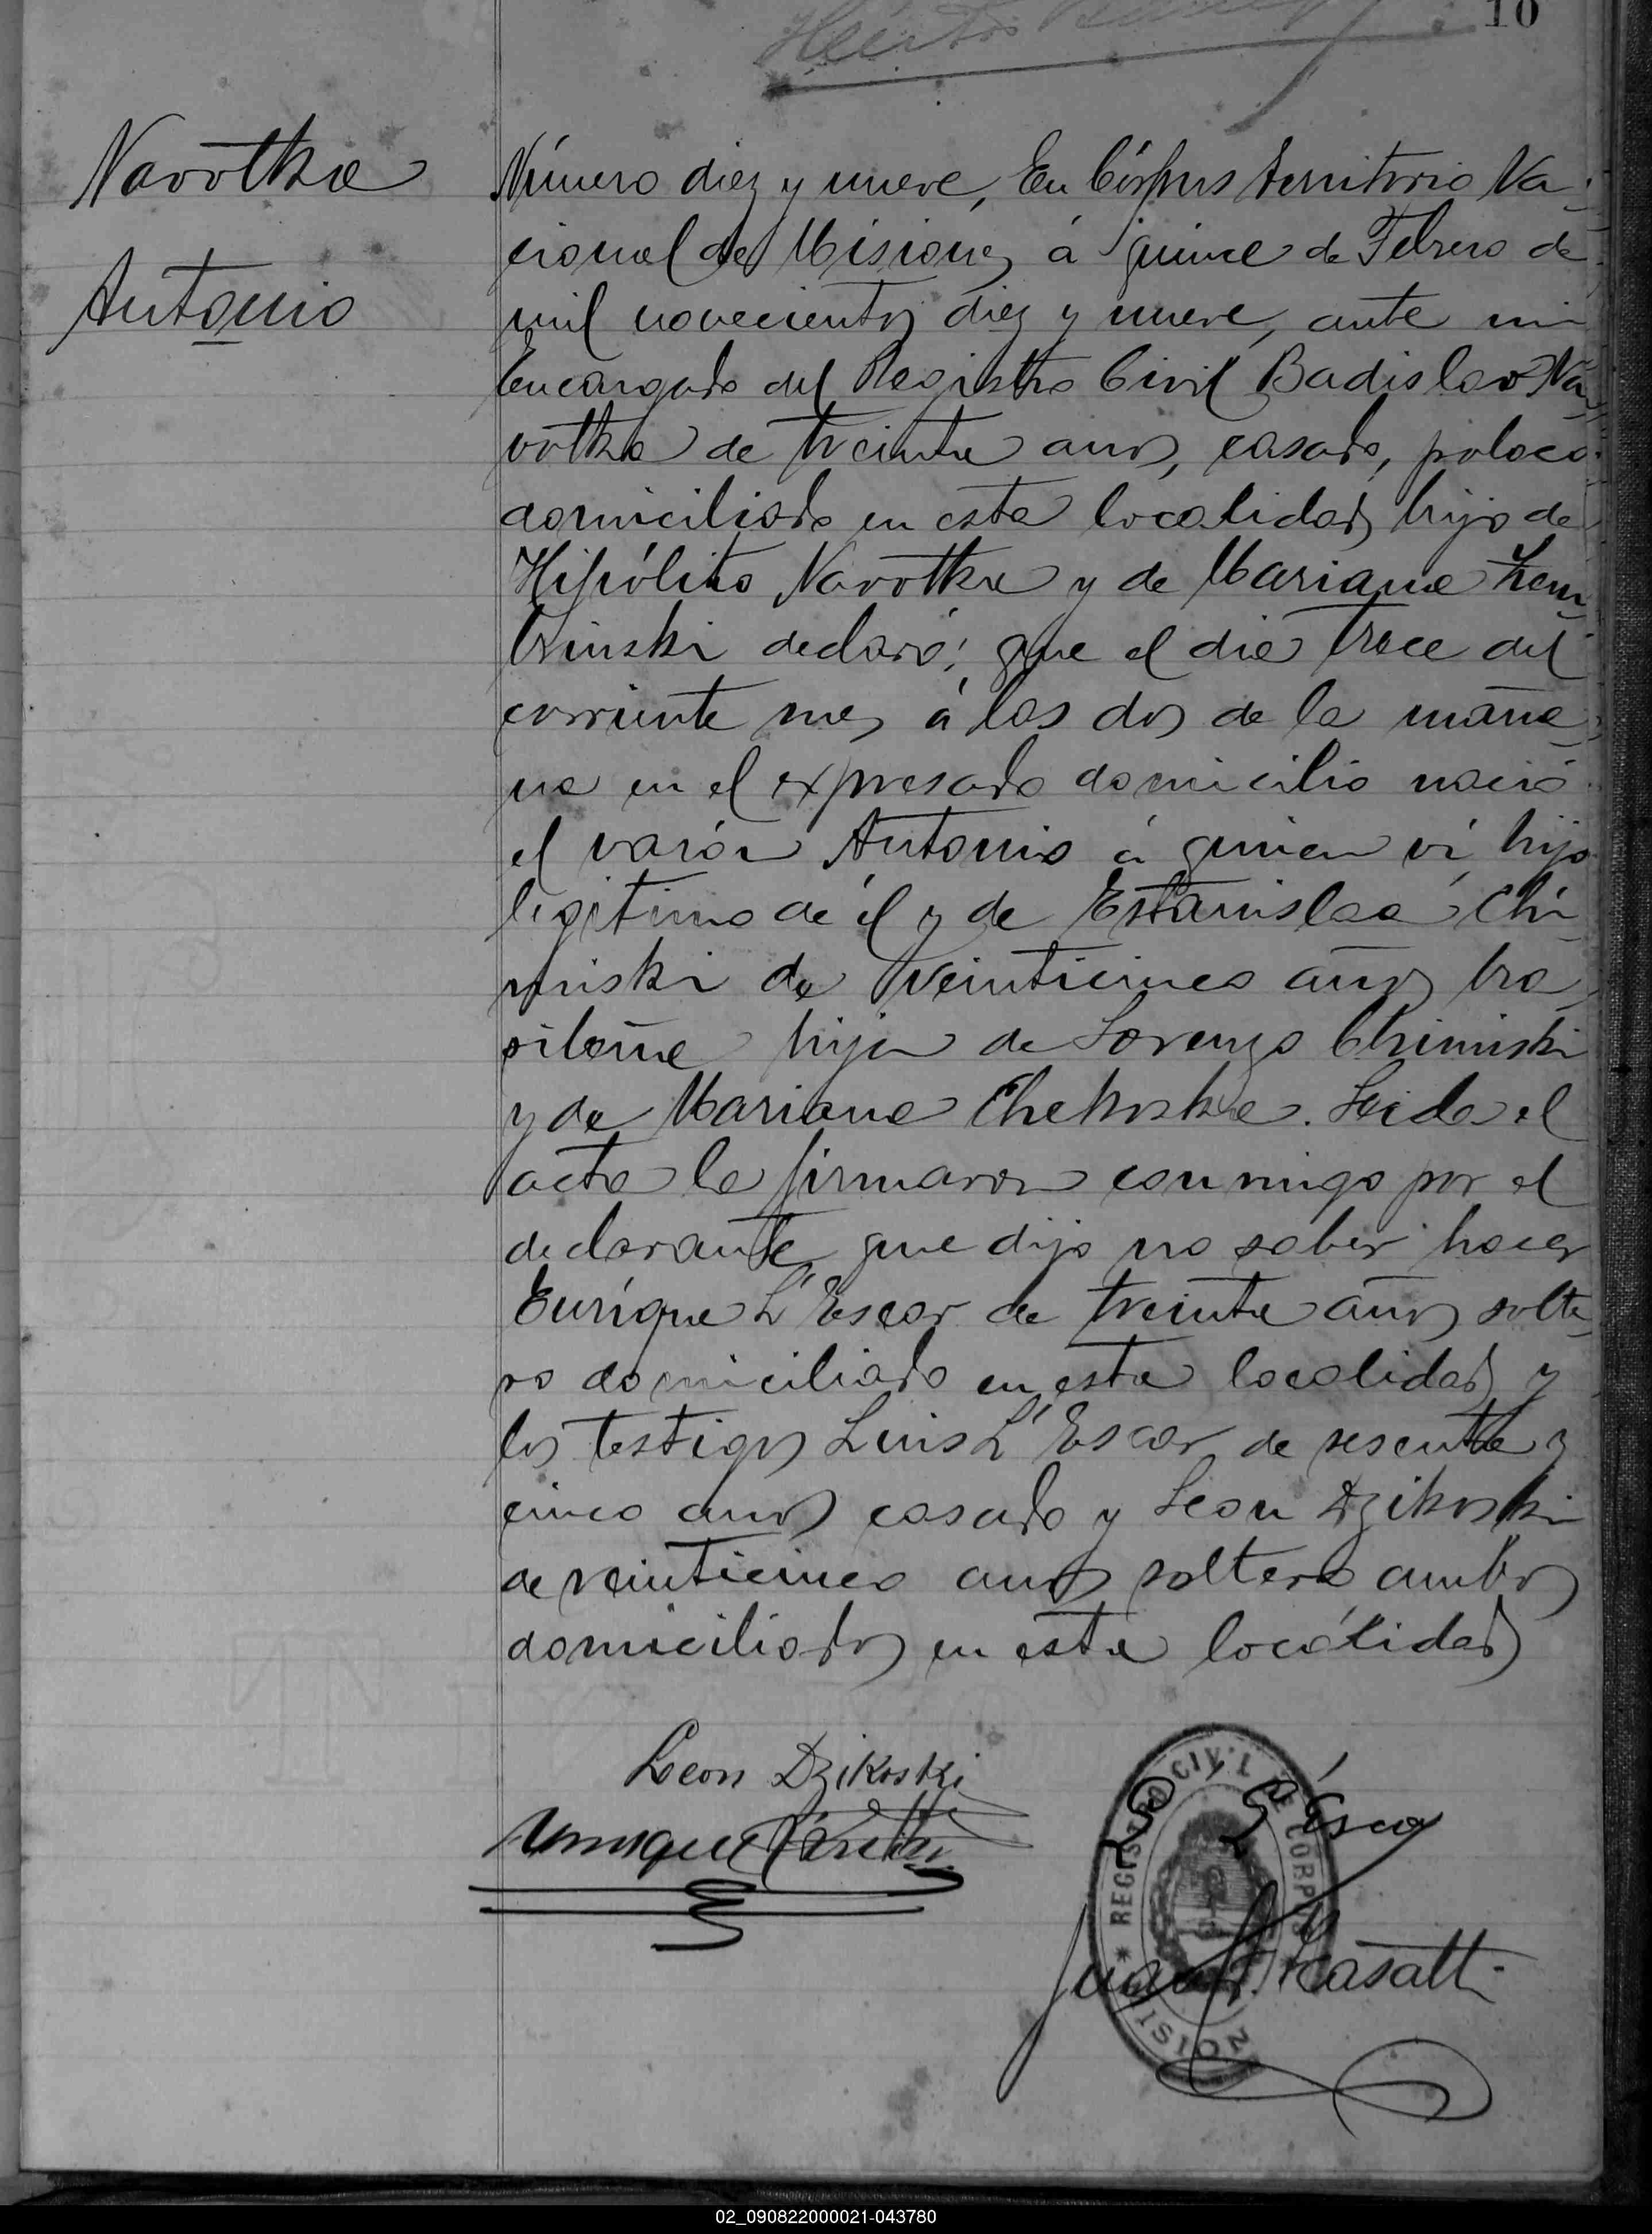 10
Navotka
Antonio
Número diez y nueve, En Córpus territorio Na-
cional de Misiones á quince de Febrero de
mil novecientos diez y nueve, ante mi
Encargado del Registro Civil Badislao Na-
votka de treinta años, casado, polaco
domiciliado en esta localidad, hijo de
Hipólito Navotka y de Mariana
declaró; que el dia trece del
corriente mes á las dos de la maña-
na en el expresado domicilio nació
el varón Antonio á quien ví hijo
legitimo de él y de Estanislaa Chi-
miski de veinticinco años bra-
sileña hija de Lorenzo Chimiski
y de Mariana Chekoska. Leida el
acta la firmaron conmigo por el
declarante que dijo no saber hacer
Enrique L'Escar de treinta años solte-
ro domiciliado en esta localidad y
los testigos Luis L'Escar de sesenta y
cinco años casado y Leon Dzikoski
de veinticinco años soltero ambos
domiciliados en esta localidad
Leon Dzikoski
REGISTRO CIVIL DE CORPUS
MISIONES
02_090822000021-043780